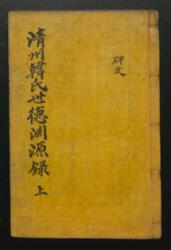 清州韓氏世德淵源錄 上
碑文